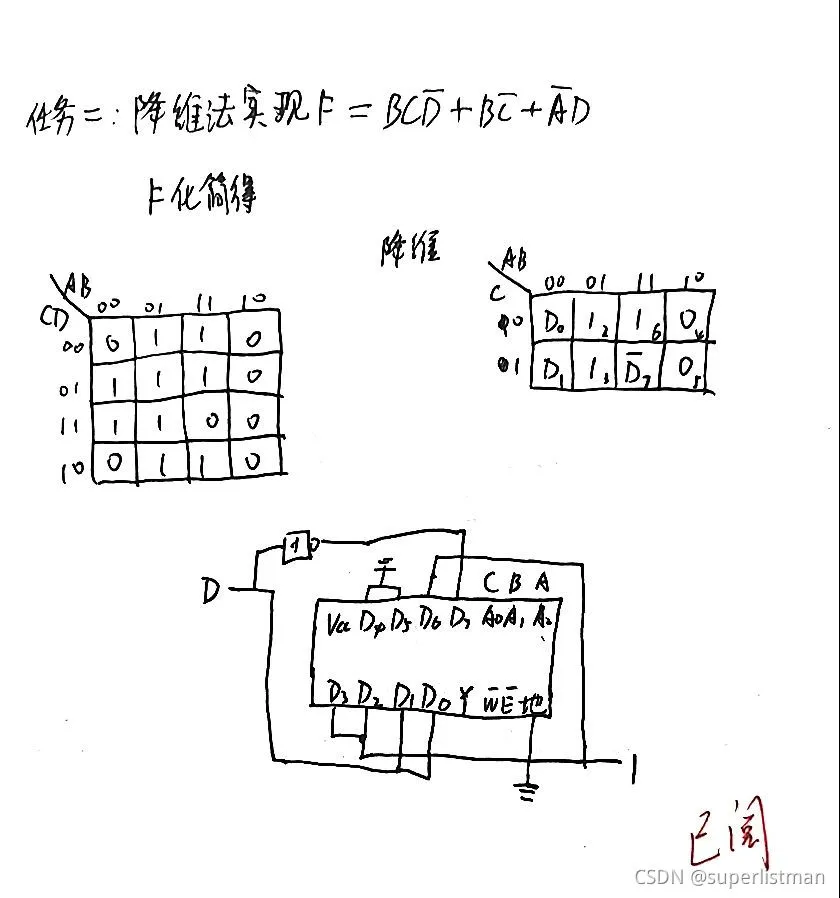 任务二:降维法实现F = BCD̅+BC̅+A̅D
F化简得
降维
AB
CD 00 01 11 10
00 0 1 1 0
01 1 1 1 0
11 1 1 0 0
10 0 1 1 0
AB
C 00 01 11 10
0 D₀ 1₂ 1₆ 0₄
1 D₁ 1₃ D̅₇ 0₅
1
D
C B A
Vcc D4 D5 D6 D7 A0 A1 A2
D3 D2 D1 D0 Y W̅ E̅ 地
1
已阅
CSDN @superlistman